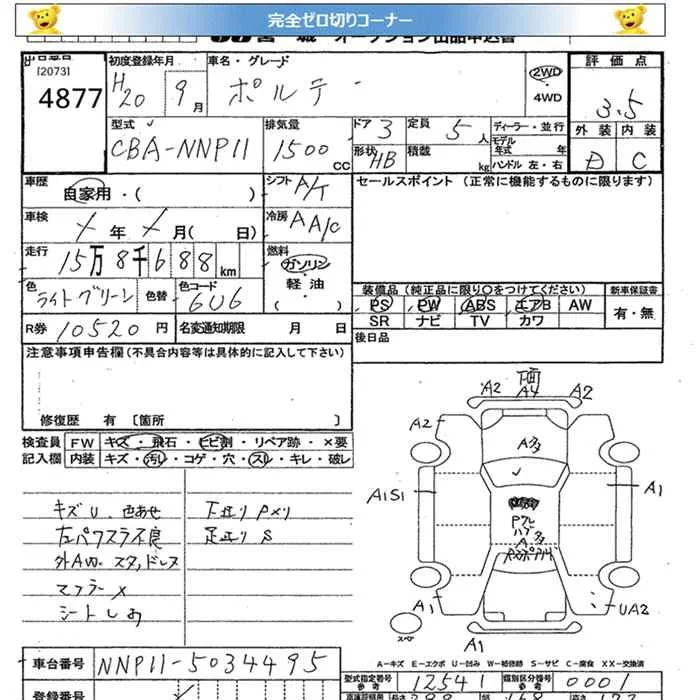 完全ゼロ切りコーナー
[2073]
4877
初度登録年月
H20 9月
車名・グレード
ポルテ
2WD
・
4WD
評価点
3.5
外装 内装
D C
型式
CBA-NNP11
排気量
1500 CC
ドア 3
定員 5 人
形状 HB
積載 kg
ディーラー・並行
モデル年式 年
ハンドル 左・右
車歴
自家用・( )
シフト A/T
車検
年 月( 日)
冷房 AA/C
走行
15万8千688km
燃料
ガソリン
・
軽油
・
( )
色
ライトグリーン
色替
色コード
6U6
R券 10520円
名変通知期限 月 日
セールスポイント (正常に機能するものに限ります)
装備品 (純正品に限り○をつけてください)
新車保証書
PS PW ABS エアB AW
SR ナビ TV カワ
有・無
後日品
注意事項申告欄(不具合内容等は具体的に記入して下さい)
修復歴 有 〔箇所 〕
検査員
記入欄
FW キズ・飛石・ヒビ割・リペア跡・×要
内装 キズ・汚レ・コゲ・穴・スレ・キレ・破レ
キズU、色あせ
左パワスラ不良
外AW、スタッドレス
マフラー×
シートしめ
下廻り Pメリ
足廻り S
下面
A2 A4 A2
A2
A1S1
A1
A1
UA2
A1
A-キズ E-エクボ U-凹み W-補修跡 S-サビ C-腐食 XX-交換済
車台番号
NNP11-5034495
型式指定番号
参考
12541
類別区分番号
参考
0001
登録番号